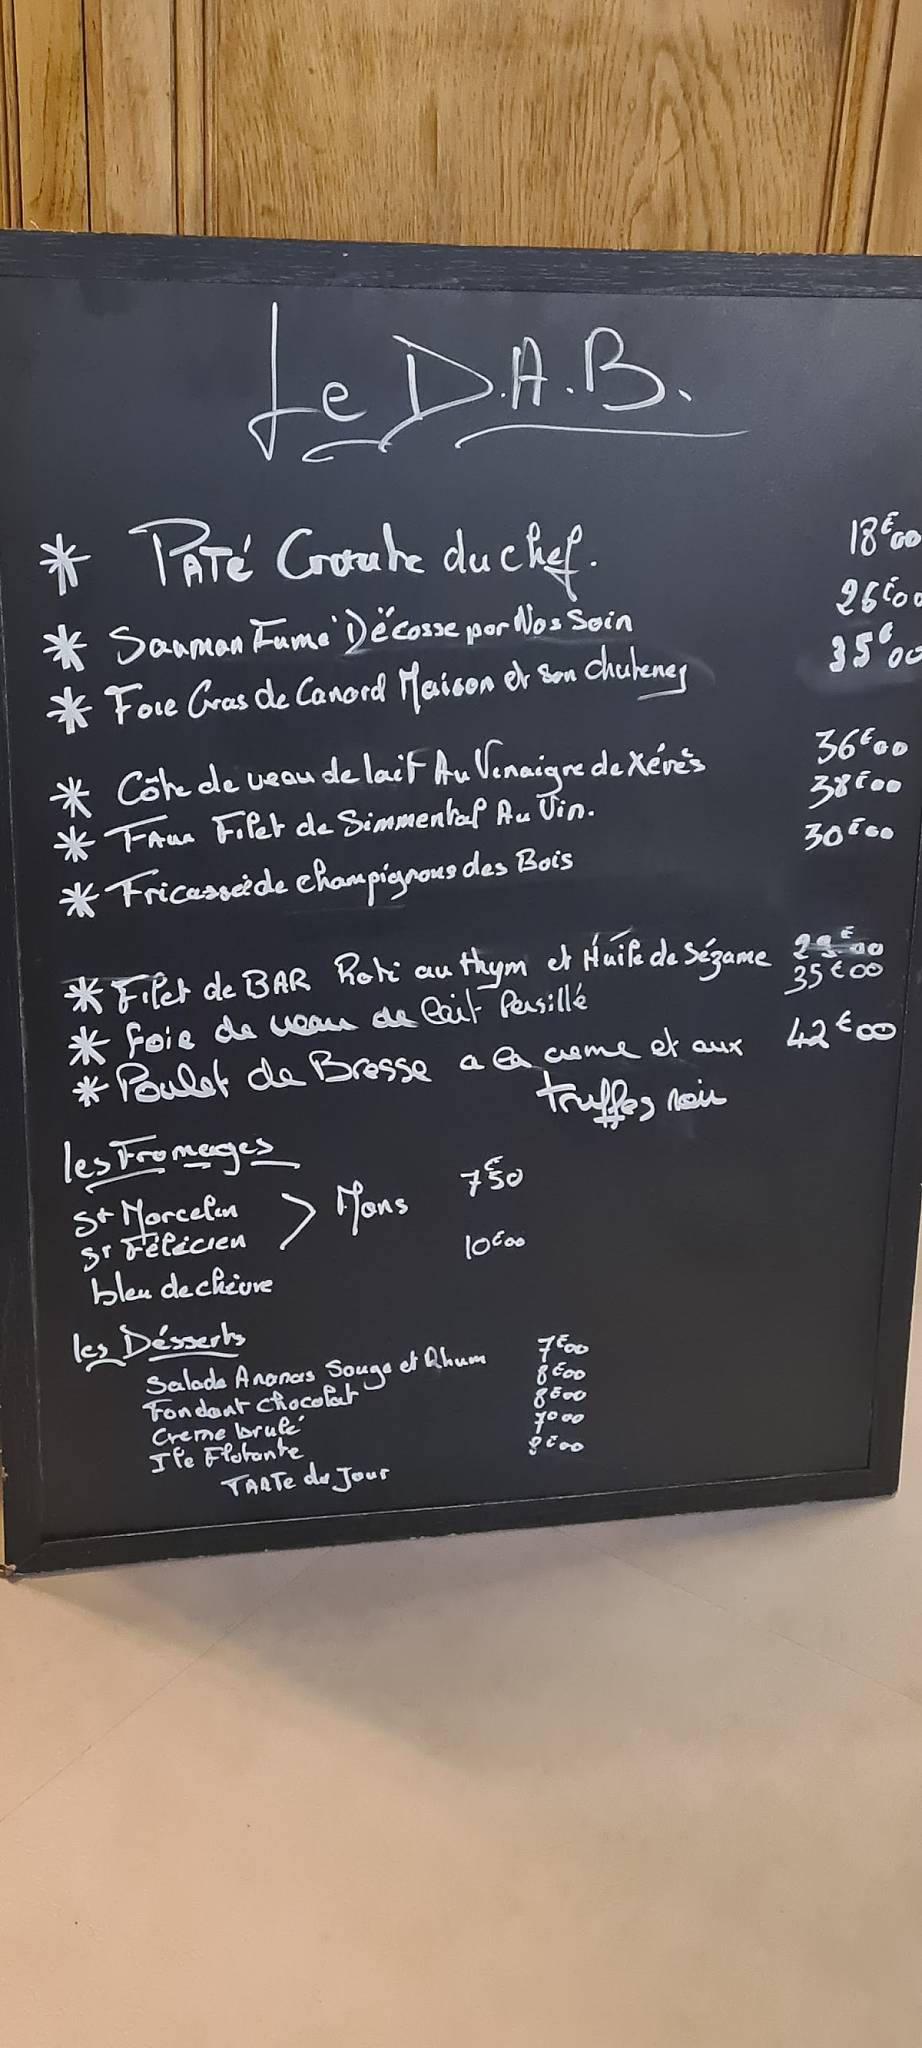 Le D.A.B.
* PATÉ Croute du chef. 18€00
* Saumon Fumé D'Ecosse par Nos Soin 26€00
* Foie Gras de Canard Maison et son chuteney 35€00
* Côte de veau de lait Au Vinaigre de Xérès 36€00
* FAux Filet de Simmental Au Vin. 38€00
* Fricassée de champignons des Bois 30€00
* Filet de BAR Roti au thym et Huile de Sézame
* foie de veau de lait Persillé 35€00
* Poulet de Bresse a la creme et aux 42€00
truffes noir
les Fromages
St Marcelin > Mons 7€50
St Félicien
bleu de chèvre 10€00
les Désserts
Salade Ananas Rhum 7€00
Fondant chocolat 8€00
Creme brulé 8€00
Ile Flotante 7€00
TARTe du Jour 8€00